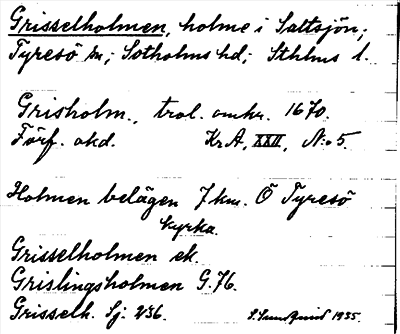 Grisselholmen, holme i Saltsjön;
Tyresö sn; Sotholms hd; Sthlms l.
Grisholm., trol. omkr. 1670.
Förf. okd. Kr A, XXII, N:o 5.
Holmen belägen 7 km. Ö Tyresö
kyrka.
Grisselholmen ek.
Grislingsholmen G.76.
Grisselh. Sj: 236. S. Sundquist 1935.